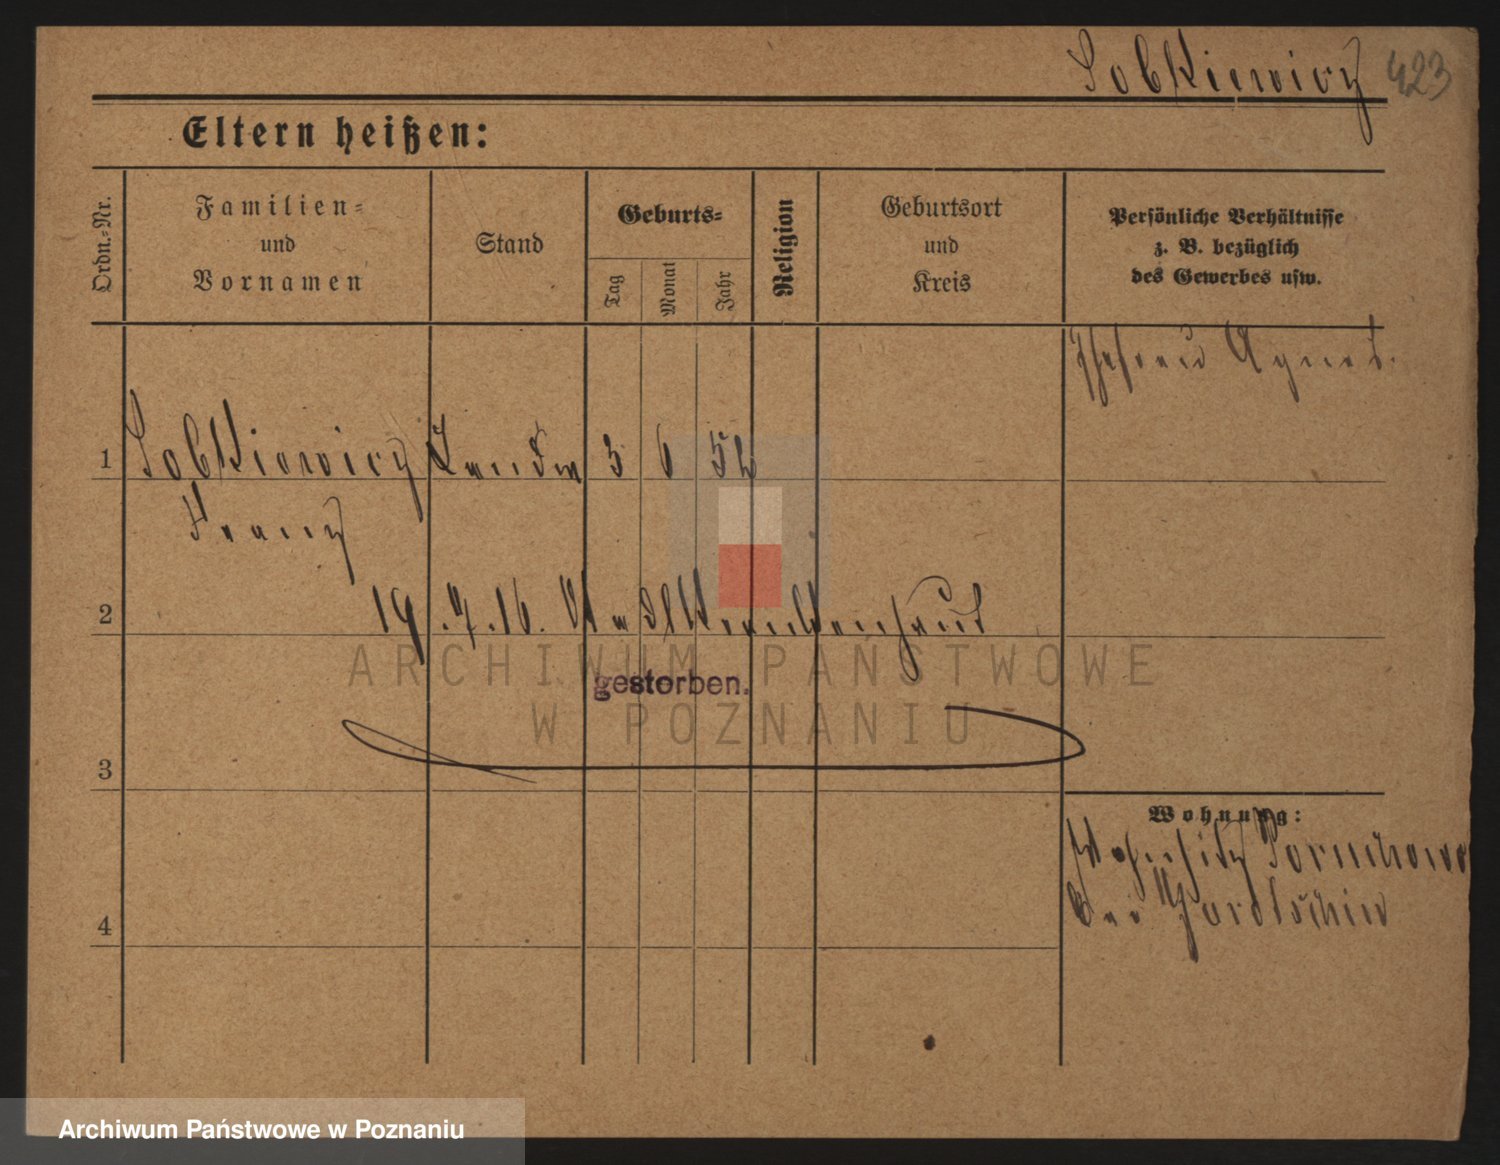 Sobkiewicz 423
Eltern heißen:
Ordn.-Nr.
Familien-
und
Vornamen
Stand
Geburts-
Tag
Monat
Jahr
Religion
Geburtsort
und
Kreis
Persönliche Verhältnisse
z. B. bezüglich
des Gewerbes usw.
Ehefrau Agnes.
1 Sobkiewicz 3 6 52
Franz
2 19.7.16. Stadtkrankenhaus
gestorben.
3
Wohnung:
Wohnsitz
bei
4
ARCHIWUM PAŃSTWOWE
W POZNANIU
Archiwum Państwowe w Poznaniu